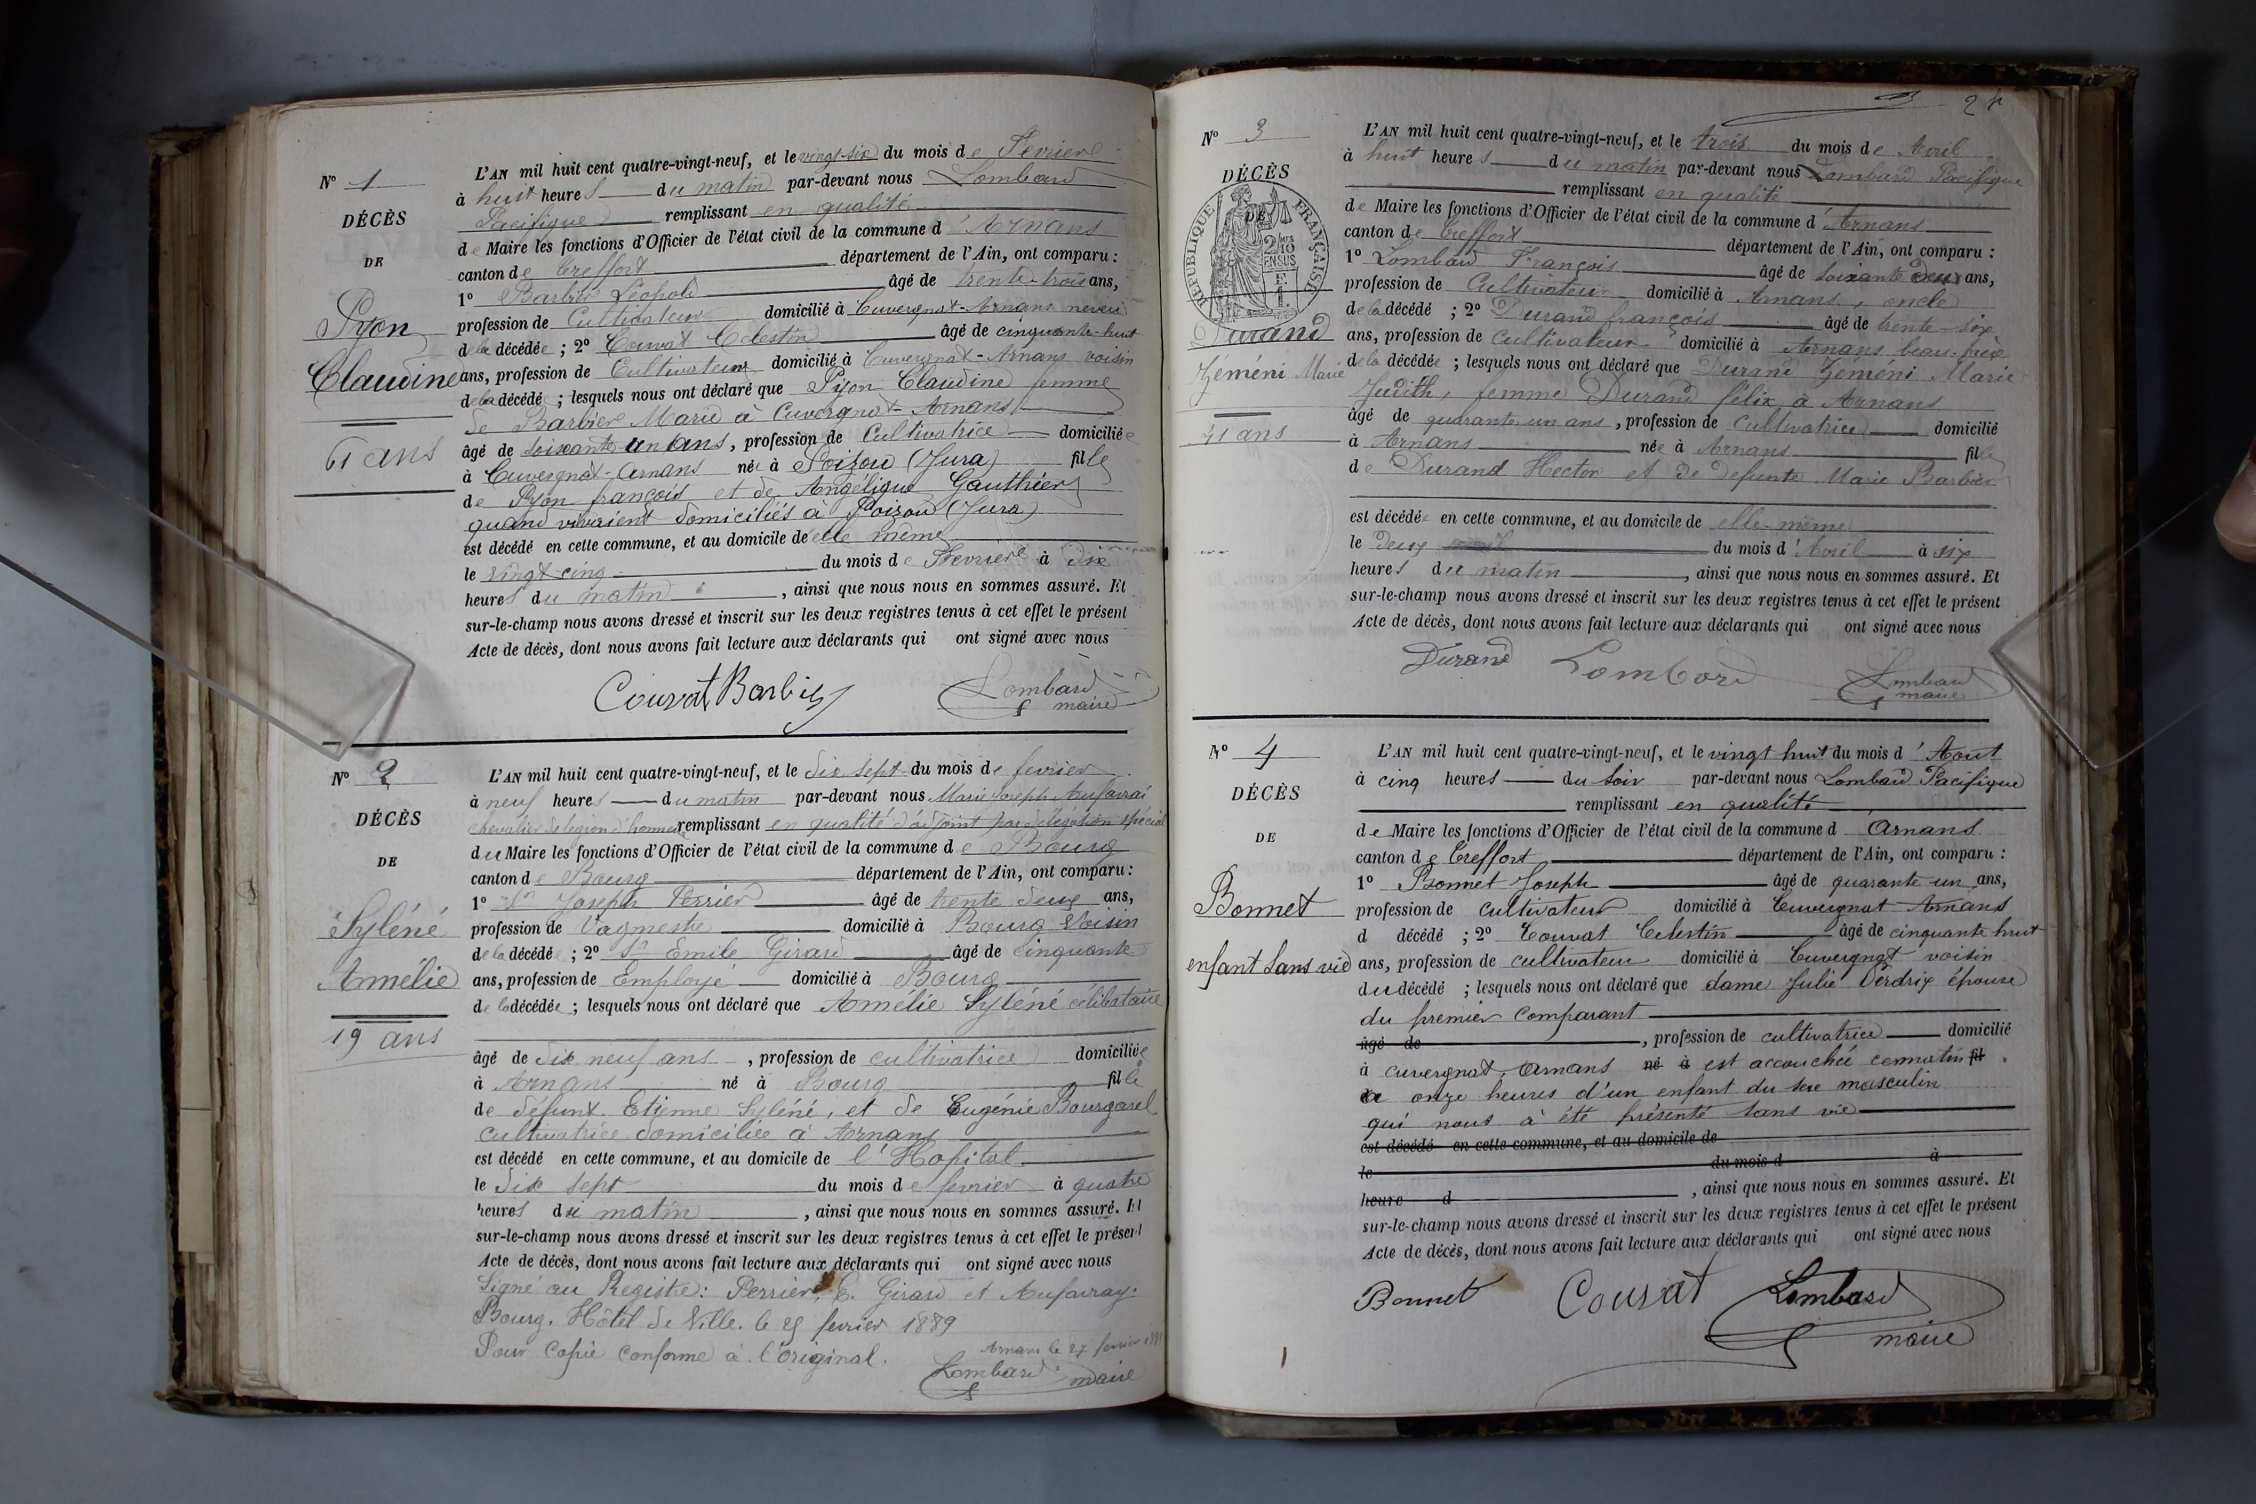 N° 1
DÉCÈS
DE
Pyon
Claudine
61 ans
L'AN mil huit cent quatre-vingt-neuf, et le vingt-six du mois de Fevrier
à huit heures du matin par-devant nous Lombard
Pacifique remplissant en qualité
de Maire les fonctions d'Officier de l'état civil de la commune d'Arnans
canton de Treffort département de l'Ain, ont comparu :
1° Barbier Léopold âgé de trente-trois ans,
profession de Cultivateur domicilié à Cuvergnat-Arnans neveu
de la décédée ; 2° Couvat Celestin âgé de cinquante-huit
ans, profession de Cultivateur domicilié à Cuvergnat-Arnans voisin
de la décédé ; lesquels nous ont déclaré que Pyon Claudine femme
de Barbier Marie à Cuvergnat-Arnans
âgé de soixante un ans, profession de Cultivatrice domiciliée
à Cuvergnat-Arnans née à Poizou (Jura) fille
de Pyon françois et de Angélique Gauthier
quand vivaient domiciliés à Poizou (Jura)
est décédé en cette commune, et au domicile de elle même
le vingt cinq du mois de Fevrier à dix
heures du matin, ainsi que nous nous en sommes assuré. Et
sur-le-champ nous avons dressé et inscrit sur les deux registres tenus à cet effet le présent
Acte de décès, dont nous avons fait lecture aux déclarants qui ont signé avec nous
Couvat Barbier Lombard
maire
N° 2
DÉCÈS
DE
Syléné
Amélie
19 ans
L'AN mil huit cent quatre-vingt-neuf, et le dix sept du mois de fevrier
à neuf heures du matin par-devant nous Marie Joseph Aufavray
chevalier de legion d'honneur remplissant en qualité d'adjoint par délégation spécial
du Maire les fonctions d'Officier de l'état civil de la commune de Bourg
canton de Bourg département de l'Ain, ont comparu :
1° Sr Joseph Perrier âgé de trente deux ans,
profession de Vagmestre domicilié à Bourg Voisin
de la décédé ; 2° Sr Emile Girard âgé de cinquante
ans, profession de Employé domicilié à Bourg
de la décédée ; lesquels nous ont déclaré que Amélie Syléné célibataire
âgé de dix neuf ans, profession de cultivatrice domiciliée
à Arnans né à Bourg fille
de défunt Etienne Syléné, et de Eugénie Bourgarel
cultivatrice domiciliée à Arnans
est décédé en cette commune, et au domicile de l'Hopital
le dix sept du mois de fevrier à quatre
heures du matin, ainsi que nous nous en sommes assuré. Et
sur-le-champ nous avons dressé et inscrit sur les deux registres tenus à cet effet le présent
Acte de décès, dont nous avons fait lecture aux déclarants qui ont signé avec nous
Signé au Registre : Perrier, E. Girard et Aufavray.
Bourg, Hôtel de Ville. le 25 fevrier 1889
Pour Copie conforme à l'original.
Arnans le 27 fevrier
Lombard maire
N° 3
DÉCÈS
DE
RÉPUBLIQUE FRANÇAISE
Durand
Zéméni Marie
41 ans
L'AN mil huit cent quatre-vingt-neuf, et le trois du mois de Avril
à huit heures du matin par-devant nous Lombard Pacifique
remplissant en qualité
de Maire les fonctions d'Officier de l'état civil de la commune d'Arnans
canton de Treffort département de l'Ain, ont comparu :
1° Lombard François âgé de soixante deux ans,
profession de Cultivateur domicilié à Arnans, oncle
de la décédé ; 2° Durand françois âgé de trente-six
ans, profession de cultivateur domicilié à Arnans beau-frère
de la décédée ; lesquels nous ont déclaré que Durand Zéméni Marie
Judith, femme Durand félix à Arnans
âgé de quarante un ans, profession de Cultivatrice domicilié
à Arnans née à Arnans fille
de Durand Hector et de Defunte Marie Barbier
est décédée en cette commune, et au domicile de elle-même
le deux du mois d'Avril à six
heures du matin, ainsi que nous nous en sommes assuré. Et
sur-le-champ nous avons dressé et inscrit sur les deux registres tenus à cet effet le présent
Acte de décès, dont nous avons fait lecture aux déclarants qui ont signé avec nous
Durand Lombard Lombard
maire
N° 4
DÉCÈS
DE
Bonnet
enfant sans vie
L'AN mil huit cent quatre-vingt-neuf, et le vingt huit du mois d'Aout
à cinq heures du soir par-devant nous Lombard Pacifique
remplissant en qualité
de Maire les fonctions d'Officier de l'état civil de la commune d Arnans
canton de Treffort département de l'Ain, ont comparu :
1° Bonnet Joseph âgé de quarante un ans,
profession de cultivateur domicilié à Cuvergnat-Arnans
d décédé ; 2° Couvat Celestin âgé de cinquante huit
ans, profession de cultivateur domicilié à Cuvergnat voisin
du décédé ; lesquels nous ont déclaré que dame Julie Verdrix épouse
du premier comparant
âgé de, profession de cultivatrice domicilié
à cuvergnat, Arnans né à est accouchée ce matin fil
de onze heures d'un enfant du sexe masculin
qui nous à été présenté sans vie
est décédé en cette commune, et au domicile de
le du mois d à
heure d, ainsi que nous nous en sommes assuré. Et
sur-le-champ nous avons dressé et inscrit sur les deux registres tenus à cet effet le présent
Acte de décès, dont nous avons fait lecture aux déclarants qui ont signé avec nous
Bonnet Couvat Lombard
maire